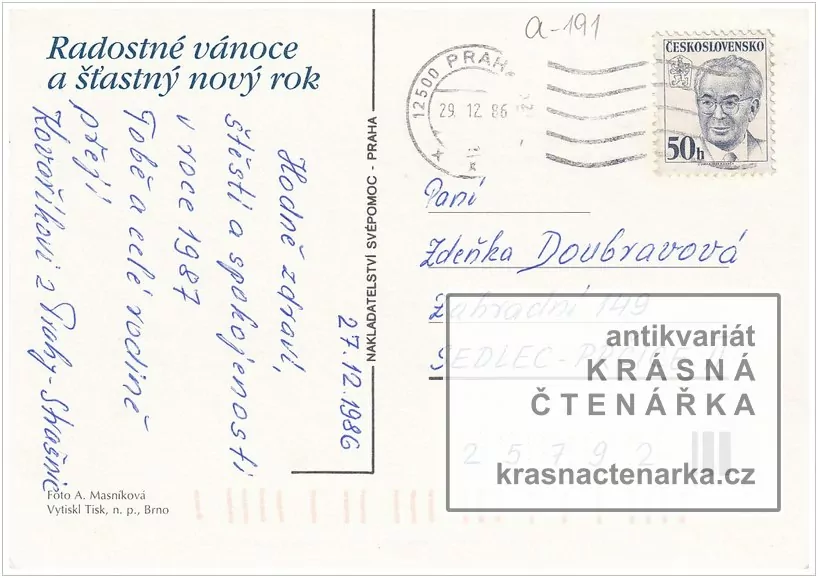 Radostné vánoce
a šťastný nový rok
27.12.1986
Hodně zdraví,
štěstí a spokojenosti
v roce 1987
Tobě a celé rodině
přejí
Kovaříkovi z Prahy-Strašnic
Foto A. Masníková
Vytiskl Tisk, n. p., Brno
NAKLADATELSTVÍ SVÉPOMOC - PRAHA
a-191
12500 PRAHA
29.12.86
ČESKOSLOVENSKO
50h
Paní
Zdeňka Doubravová
Zahradní 149
SEDLEC-PRČICE II
25792
antikvariát
KRÁSNÁ
ČTENÁŘKA
krasnactenarka.cz